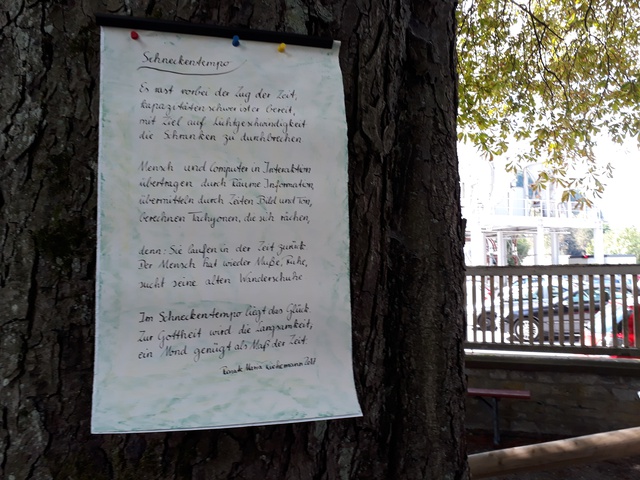 Schneckentempo
Es rast vorbei der Zug der Zeit,
Kapazitäten schwer ist er bereit,
mit Ziel auf Lichtgeschwindigkeit
die Schranken zu durchbrechen
Mensch und Computer in Interaktion
übertragen durch Räume Information,
übermitteln durch Zeiten Bild und Ton,
berechnen Tachyonen, die sich rächen,
denn: Sie laufen in der Zeit zurück
Der Mensch hat wieder Muße, Ruhe,
sucht seine alten Wanderschuhe
Im Schneckentempo liegt das Glück.
Zur Gottheit wird die Langsamkeit,
ein Mond genügt als Maß der Zeit.
Maria